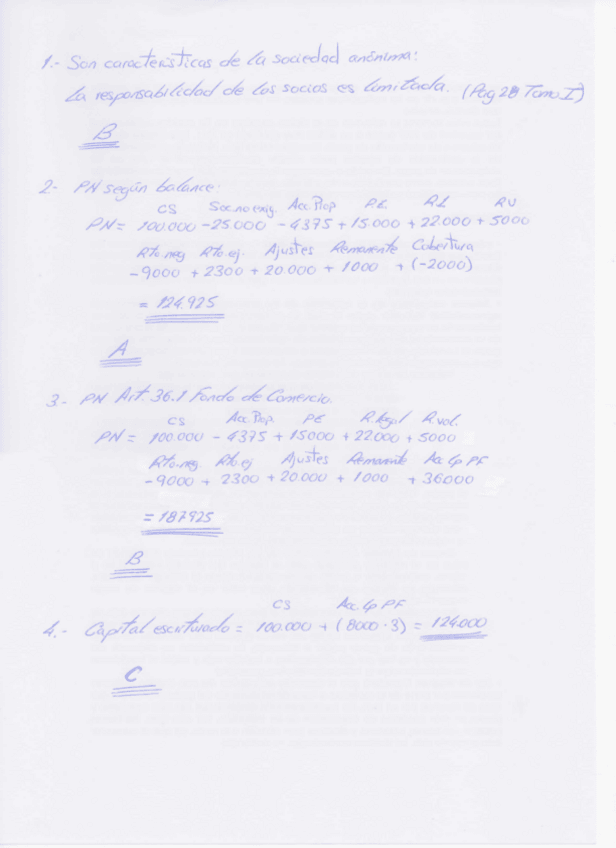 1.- Son características de la sociedad anónima:
La responsabilidad de los socios es limitada. (Pag 28 Tomo I)
B
2.- PN según balance:
CS Soc. no exig. Acc. Prop PE. RL RV
PN = 100.000 - 25000 - 4375 + 15.000 + 22000 + 5000
Rto. neg Rto. ej. Ajustes Remanente Cobertura
- 9000 + 2300 + 20.000 + 1000 + (-2000)
= 124.925
A
3.- PN Art. 36.1 Fondo de Comercio.
CS Acc. Prop. PE R. legal R. vol.
PN = 100.000 - 4375 + 15000 + 22000 + 5000
Rto. neg. Rto. ej Ajustes Remanente Acc. Lp PF
- 9000 + 2300 + 20.000 + 1000 + 36000
= 187925
B
CS Acc. Lp PF
4.- Capital escriturado = 100.000 + (8000 · 3) = 124.000
C